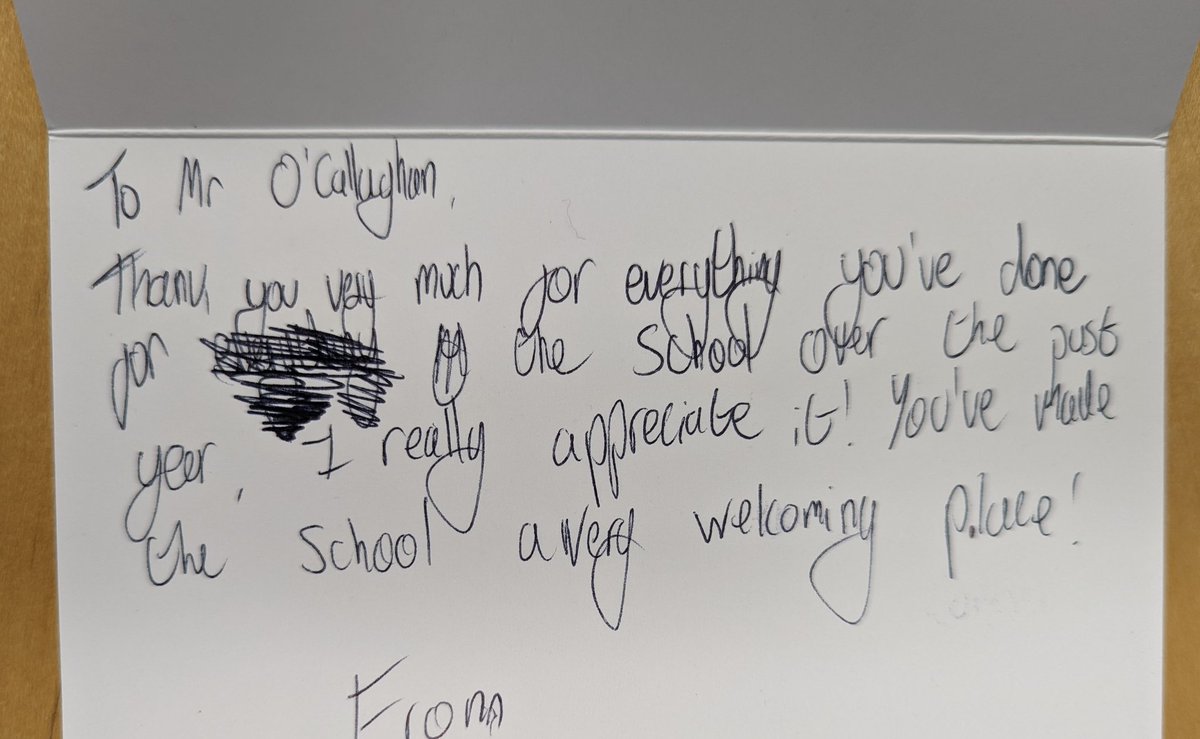 To Mr O'Callaghan,
Thank you very much for everything you've done
for the school over the past
year, I really appreciate it! You've made
the school a very welcoming place!
From